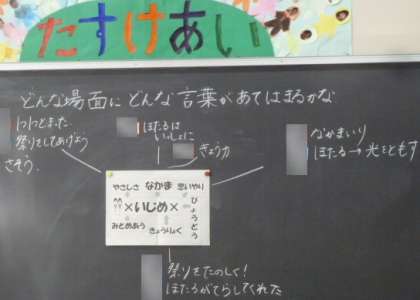 たすけあい
どんな場面にどんな言葉があてはまるかな
祭りをしてあげよう
さそう.
ほたるは
いっしょに
きょう力
なかまいり
ほたる→光をともす
やさしさ なかま 思いやり
×いじめ×
びょうどう
みとめあう きょうりょく
祭りをたのしく!
ほたるがてらしてくれた